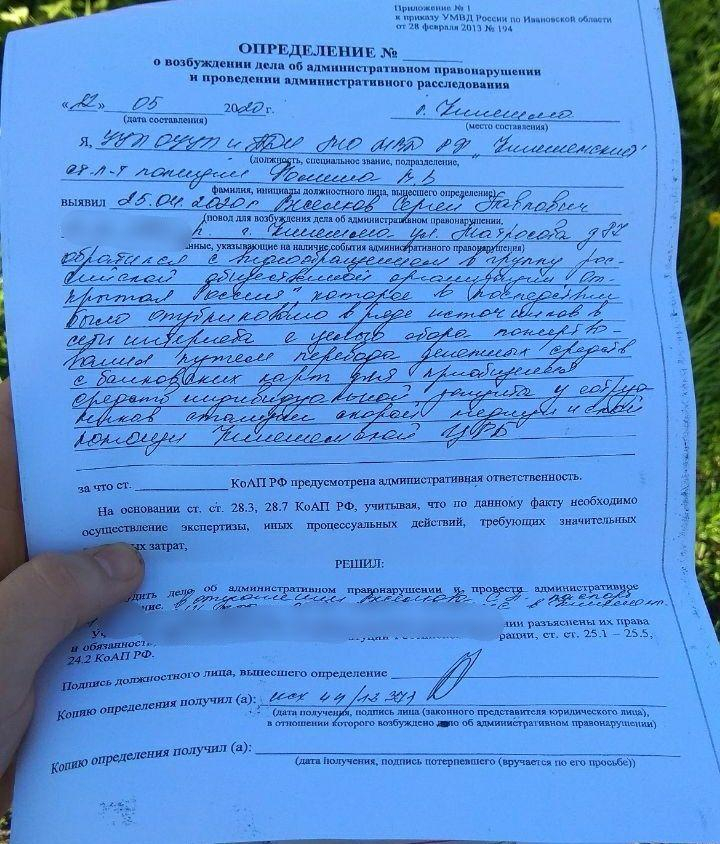 Приложение № 1
к приказу УМВД России по Ивановской области
от 28 февраля 2013 № 194
ОПРЕДЕЛЕНИЕ №
о возбуждении дела об административном правонарушении
и проведении административного расследования
«22» 05 2020 г. г. Кинешма
(дата составления) (место составления)
Я, УУП ОУУП и ПДН МО МВД РФ "Кинешемский"
(должность, специальное звание, подразделение,
ст. л-т полиции
фамилия, инициалы должностного лица, вынесшего определение)
выявил 25.04.2020г Сергей Павлович
(повод для возбуждения дела об административном правонарушении,
г. Кинешма ул.
нные, указывающие на наличие события административного правонарушения)
обратился с видеообращением в группу рос-
сийской общественной организации "От-
крытая Россия", которое в последствии
было опубликовано в ряде источников в
сети интернета с целью сбора пожертво-
вания путем перевода денежных средств
с банковских карт для приобретения
средств индивидуальной защиты у сотруд
ников станции скорой медицинской
помощи Кинешемской ЦРБ
за что ст. КоАП РФ предусмотрена административная ответственность.
На основании ст. ст. 28.3, 28.7 КоАП РФ, учитывая, что по данному факту необходимо
осуществление экспертизы, иных процессуальных действий, требующих значительных
ых затрат,
РЕШИЛ:
дить дело об административном правонарушении и провести административное
ние. в отношении
нии разъяснены их права
и обязанност рации, ст. ст. 25.1 – 25.5,
24.2 КоАП РФ.
Подпись должностного лица, вынесшего определение
Копию определения получил (а): исх 44/12
(дата получения, подпись лица (законного представителя юридического лица),
в отношении которого возбуждено дело об административном правонарушении)
Копию определения получил (а):
(дата получения, подпись потерпевшего (вручается по его просьбе))